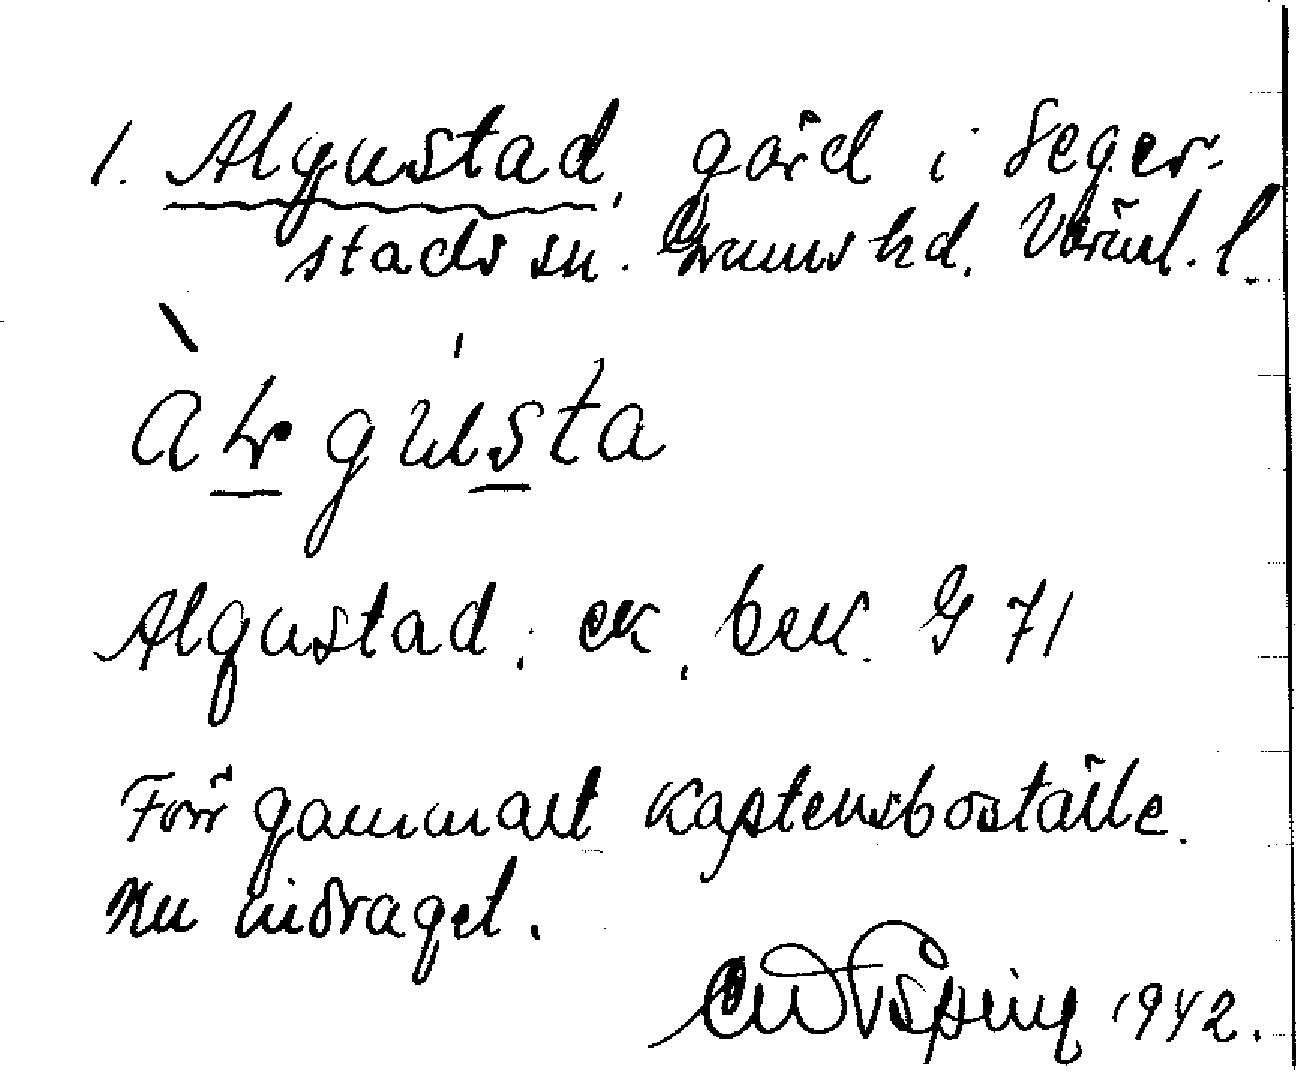 1. Algustad, gård i Seger-
stads sn. Grums hd. Värml. l.
Algustad, ek, bek. G 71
Förr gammalt Kaptensboställe.
Nu indraget.
1942.